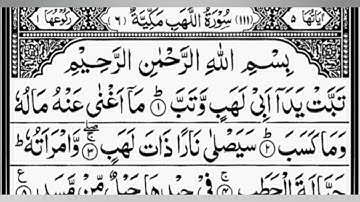 اٰيَاتُهَا ٥ (١١١) سُوْرَةُ اللَّهَبِ مَكِّيَّةٌ (٦) رُكُوْعُهَا ١
بِسْمِ اللّٰهِ الرَّحْمٰنِ الرَّحِيْمِ
تَبَّتْ يَدَاۤ اَبِيْ لَهَبٍ وَّتَبَّ ؕ﴿١﴾ مَاۤ اَغْنٰى عَنْهُ مَالُهٗ
وَمَا كَسَبَ ؕ﴿٢﴾ سَيَصْلٰى نَارًا ذَاتَ لَهَبٍ ۚۖ﴿٣﴾ وَّامْرَاَتُهٗ ؕ
حَمَّالَةَ الْحَطَبِ ۚ﴿٤﴾ فِيْ جِيْدِهَا حَبْلٌ مِّنْ مَّسَدٍ ﴿٥﴾ ع